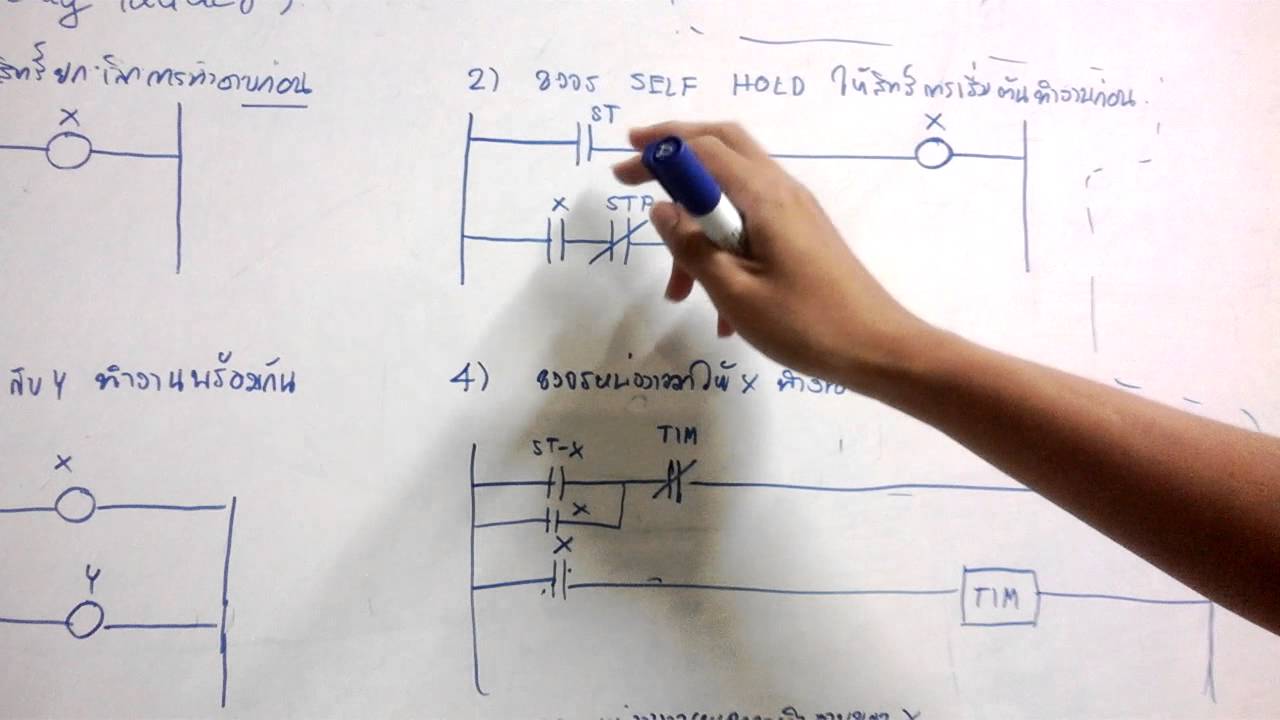 สิทธิ์ยกเลิกการทำงานก่อน
X
2) วงจร SELF HOLD ให้สิทธิ์การเริ่มต้นทำงานก่อน
ST
X
X
STP
กับ Y ทำงานพร้อมกัน
X
Y
4) วงจรหน่วงเวลาให้ X
ST-X
TIM
X
X
TIM